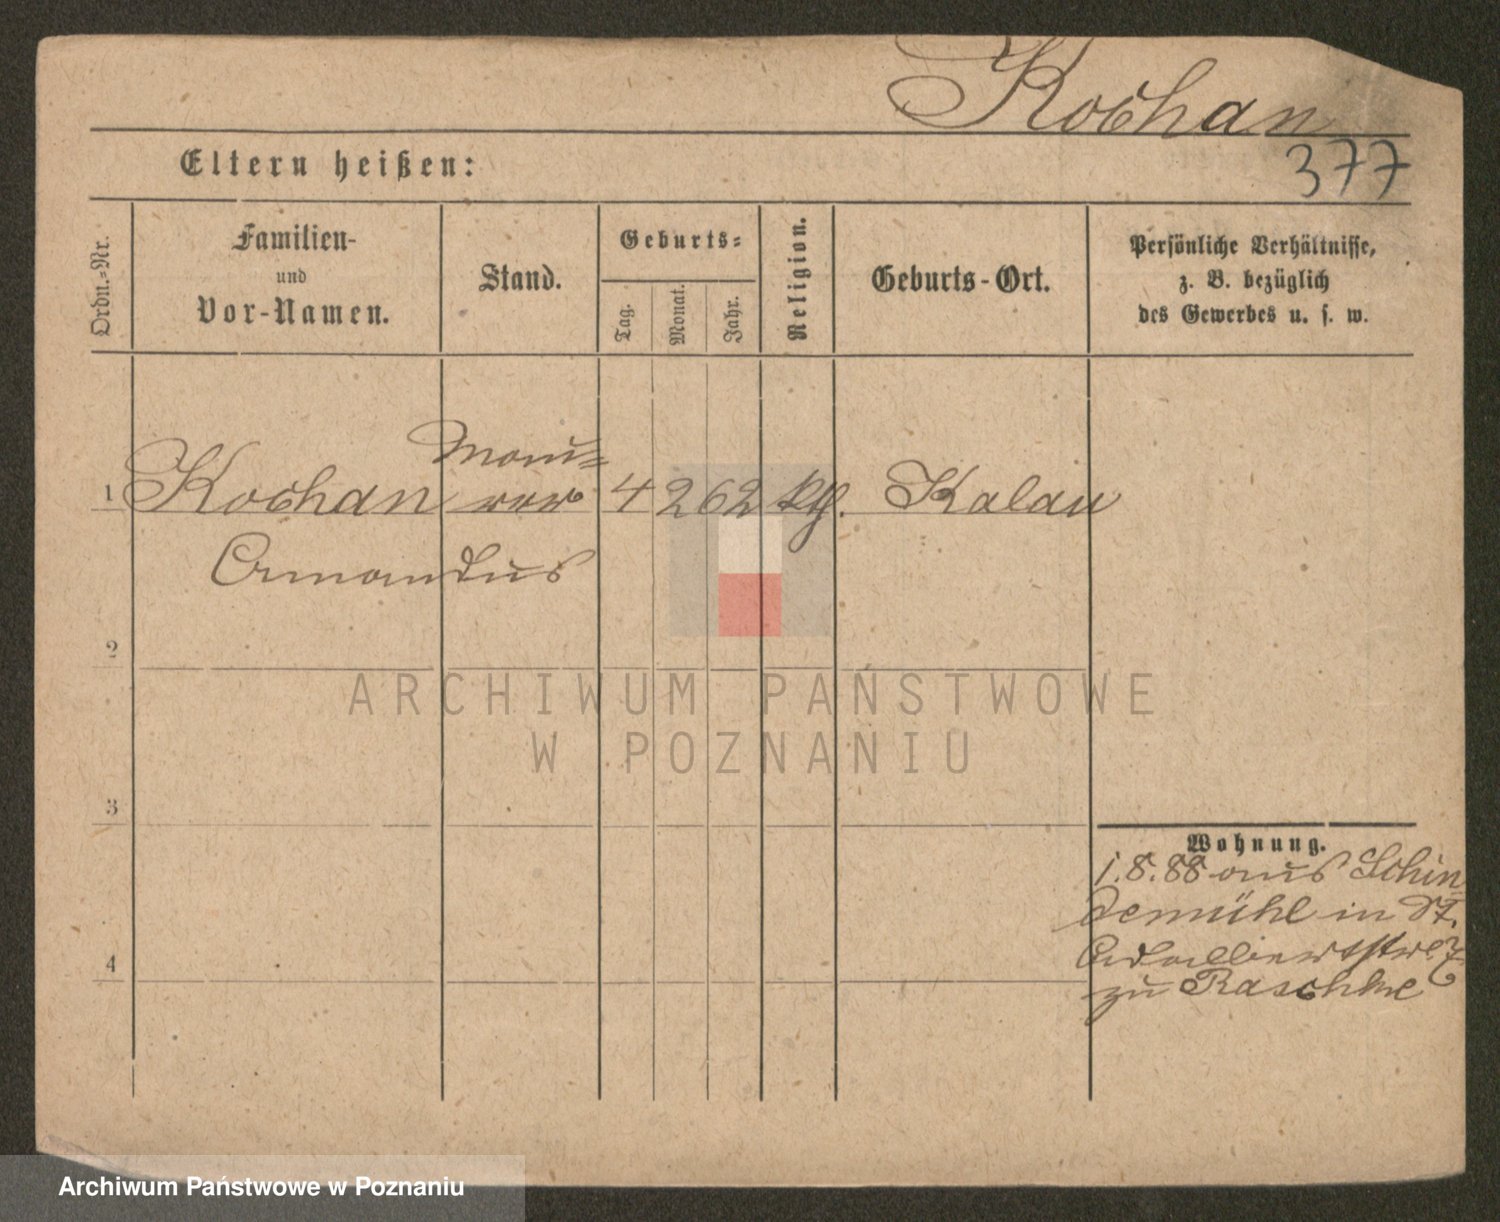 Kochan
377
Eltern heißen:
Ordn.-Nr.
Familien-
und
Vor-Namen.
Stand.
Geburts-
Tag.
Monat.
Jahr.
Religion.
Geburts-Ort.
Persönliche Verhältnisse,
z. B. bezüglich
des Gewerbes u. s. w.
Mau-
1 Kochan rer 4 2 62 kth. Kalau
Amandus
2
ARCHIWUM PAŃSTWOWE
W POZNANIU
3
Wohnung.
1.8.88 aus Schin-
demühl in St.
Adalbertstr. 7
zu Raschke
4
Archiwum Państwowe w Poznaniu